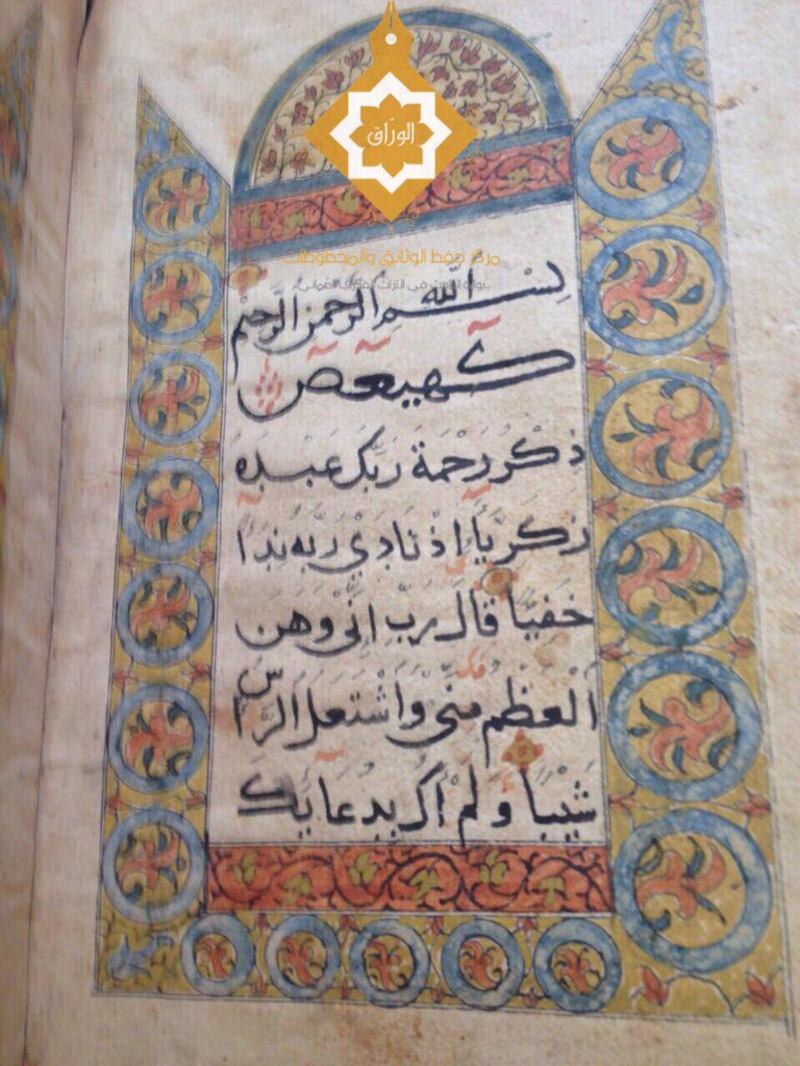 الورّاق
مركز حفظ الوثائق والمخطوطات
بِسْمِ اللّٰهِ الرَّحْمٰنِ الرَّحِيْمِ
كهيعص
ذِكْرُ رَحْمَةِ رَبِّكَ عَبْدَهُ
زَكَرِيَّا اِذْ نَادٰي رَبَّهُ نِدَاً
خَفِيّاً قَالَ رَبِّ اِنِّي وَهَنَ
اَلْعَظْمُ مِنِّي وَاَشْتَعَلَ اَلرَّاسُ
شَيْباً وَلَمْ اَكُ بِدُعَايِكَ